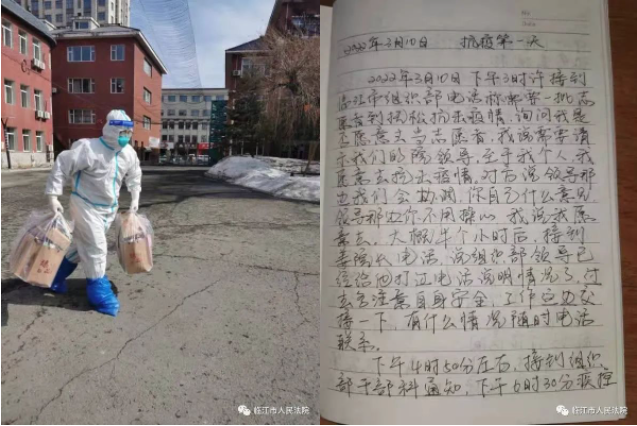 2022年3月10日 抗疫第一天
2022年3月10日下午3时许接到
临江市组织部电话称需要一批志
愿者到积极抗击疫情,询问我是
否愿意去当志愿者,我说需要请
示我们的院领导,至于我个人,我
愿意去抗击疫情,对方说领导那
边我们会协调,你自己什么意见,
领导那边你不用操心,我说我愿
意去。大概1个小时后,接到
院长电话,说组织部领导已
经给他打过电话说明情况了,过
去多注意自身安全,工作
接一下,有什么情况随时电话
联系。
下午4时50分左右,接到组织
部干部科通知,下午6时30分疾控
临江市人民法院
临江市人民法院